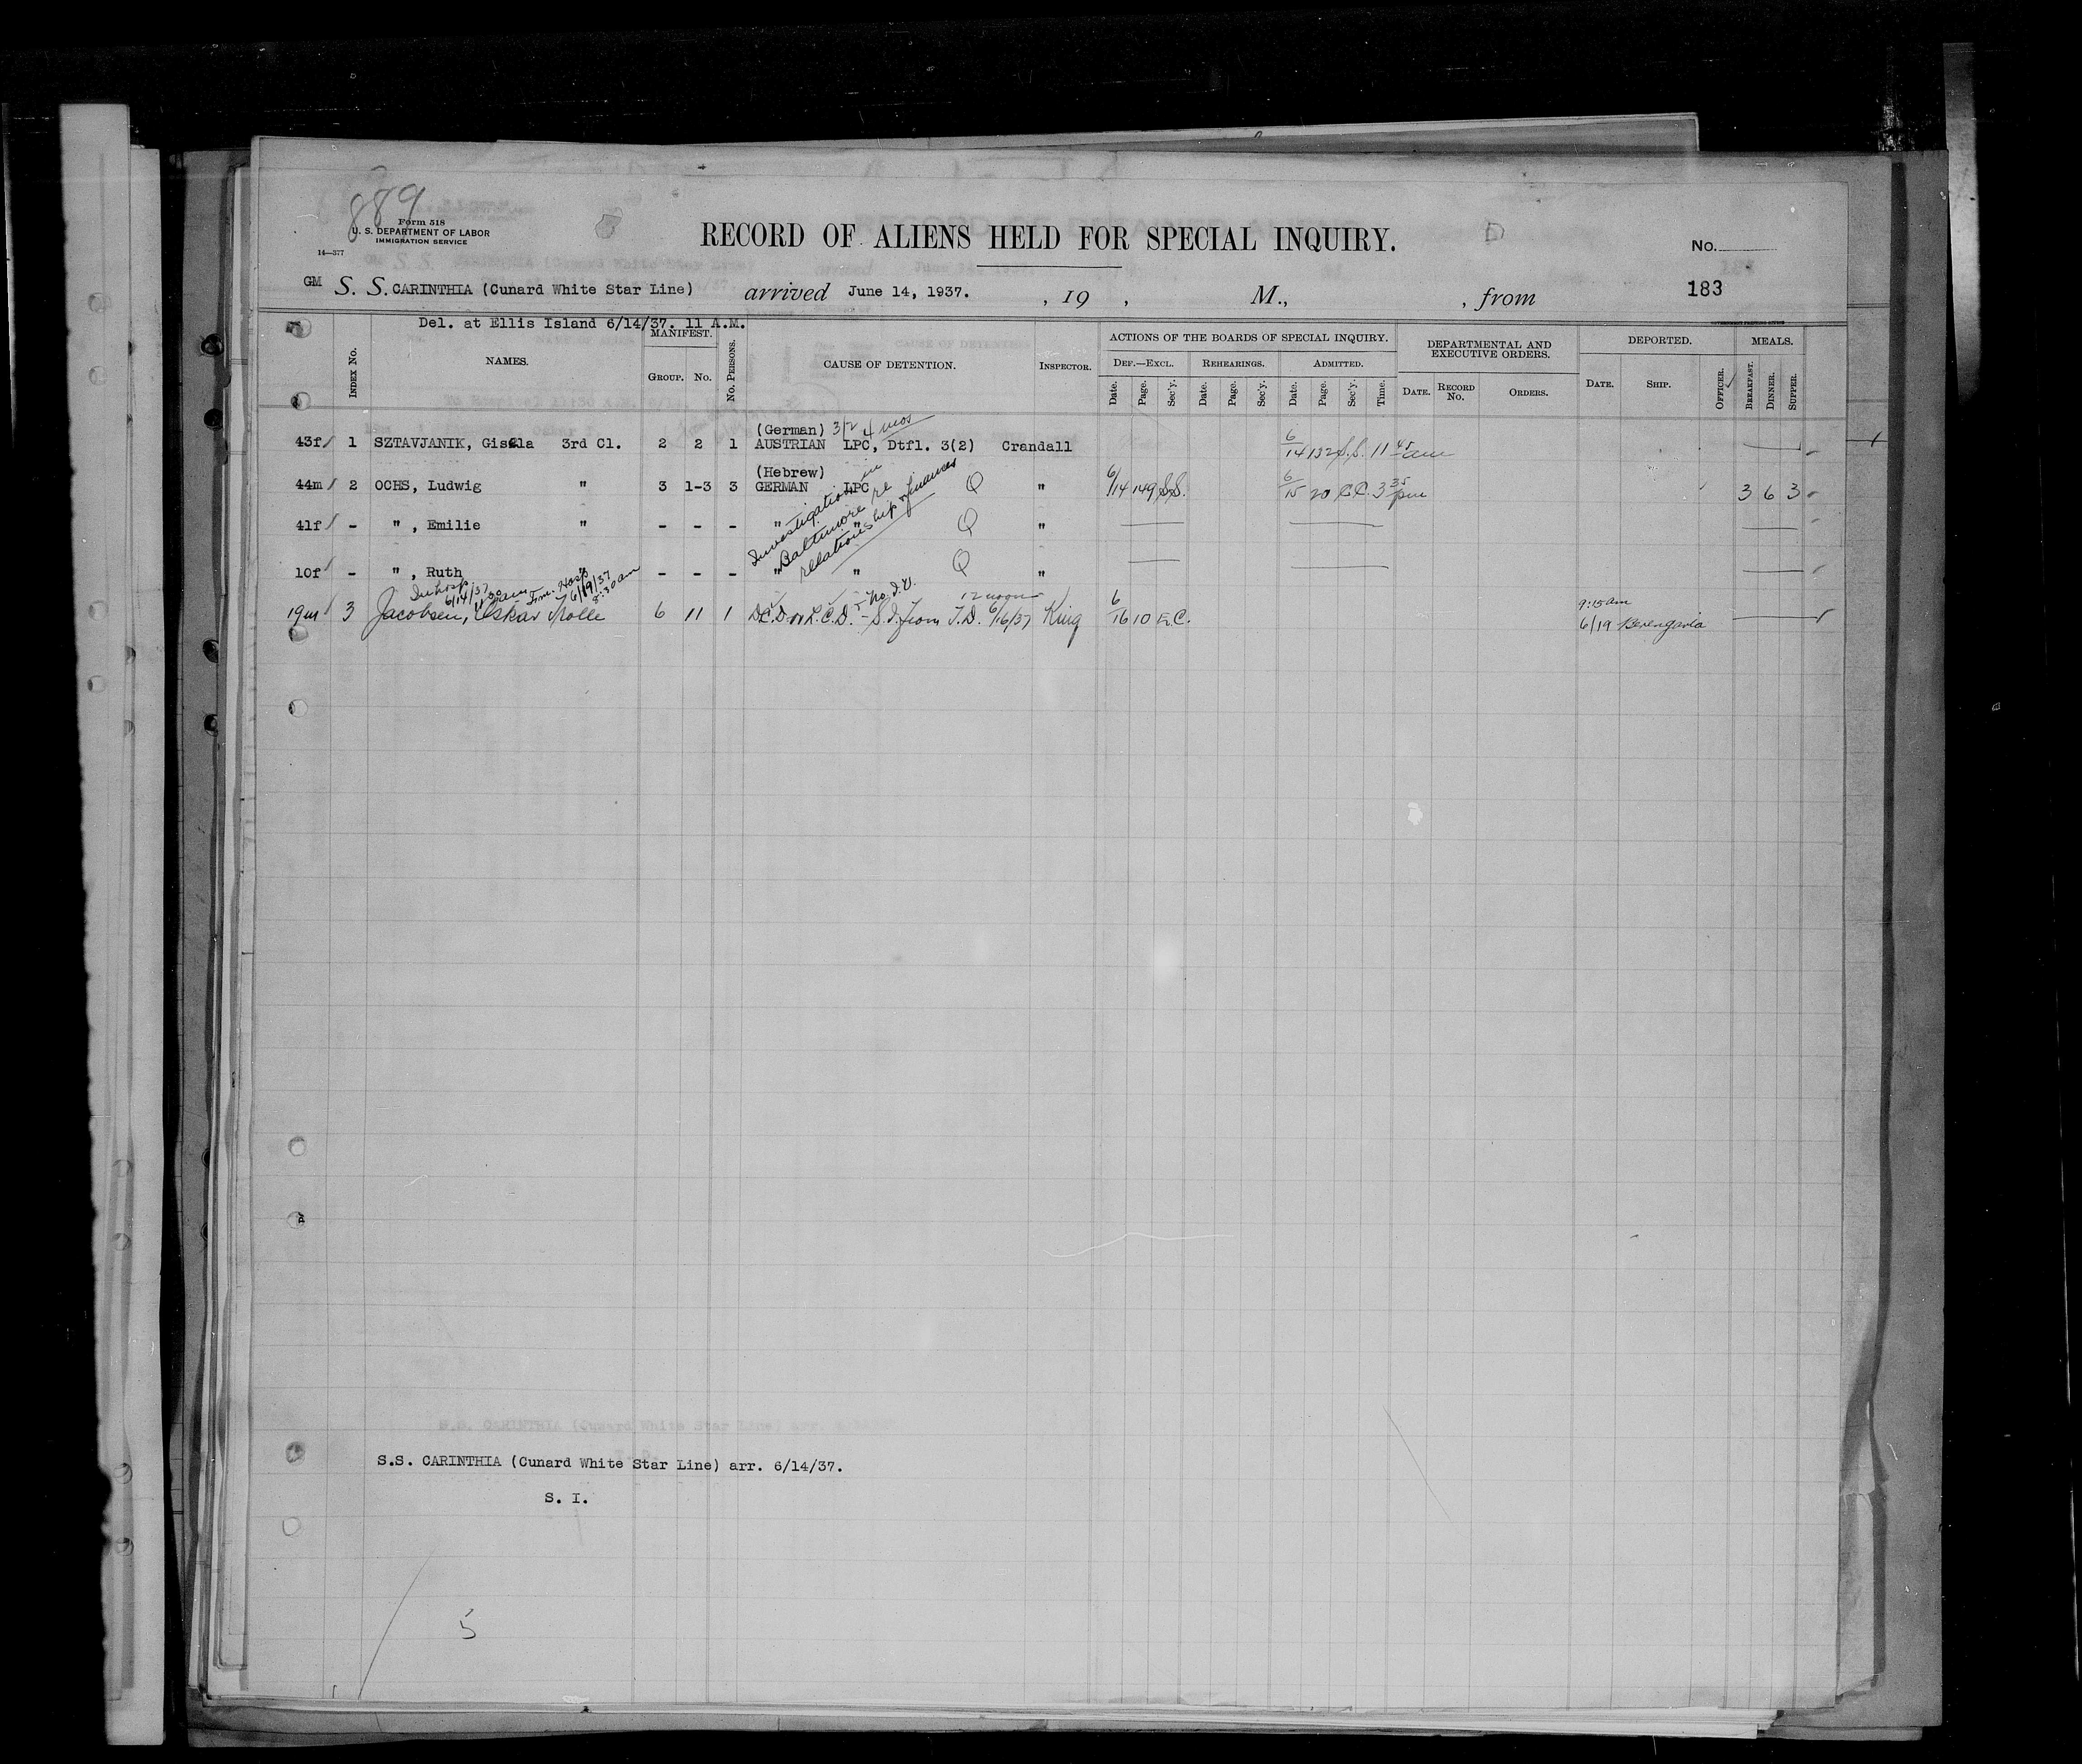 889
Form 518
U. S. DEPARTMENT OF LABOR
IMMIGRATION SERVICE
14—377
RECORD OF ALIENS HELD FOR SPECIAL INQUIRY.
D
No.
183
GM S. S. CARINTHIA (Cunard White Star Line) arrived June 14, 1937. , 19 , M., , from
Del. at Ellis Island 6/14/37. 11 A.M.
INDEX No. NAMES. MANIFEST. GROUP. No. No. PERSONS. CAUSE OF DETENTION. INSPECTOR.
ACTIONS OF THE BOARDS OF SPECIAL INQUIRY.
DEF.—EXCL. REHEARINGS. ADMITTED.
Date. Page. Sec'y. Date. Page. Sec'y. Date. Page. Sec'y. Time.
DEPARTMENTAL AND EXECUTIVE ORDERS.
DATE. RECORD No. ORDERS.
DEPORTED.
DATE. SHIP. OFFICER.
MEALS.
BREAKFAST. DINNER. SUPPER.
(German) 3/2 4 mos
43f 1 SZTAVJANIK, Gisela 3rd Cl. 2 2 1 AUSTRIAN LPC, Dtfl. 3(2) Crandall 6/14 132 S.S. 11 45 am
(Hebrew)
44m 2 OCHS, Ludwig " 3 1-3 3 GERMAN LPC Q " 6/14 149 S.S. 6/15 20 C.C. 3 35 pm 3 6 3
Investigation in
Baltimore re
relationship & finances
41f - " , Emilie " - - - " " Q "
10f - " , Ruth " - - - " " Q "
In hosp 6/14/37 11 30 am - Fm. Hosp 6/19/37 8:30 am
19m 3 Jacobsen, Oskar Molle 6 11 1 - No I.V. 12 noon S.I. from T.D. 6/16/37 King 6/16 10 E.C. 9:15 am 6/19 Berengaria
S.S. CARINTHIA (Cunard White Star Line) arr. 6/14/37.
S. I.
5